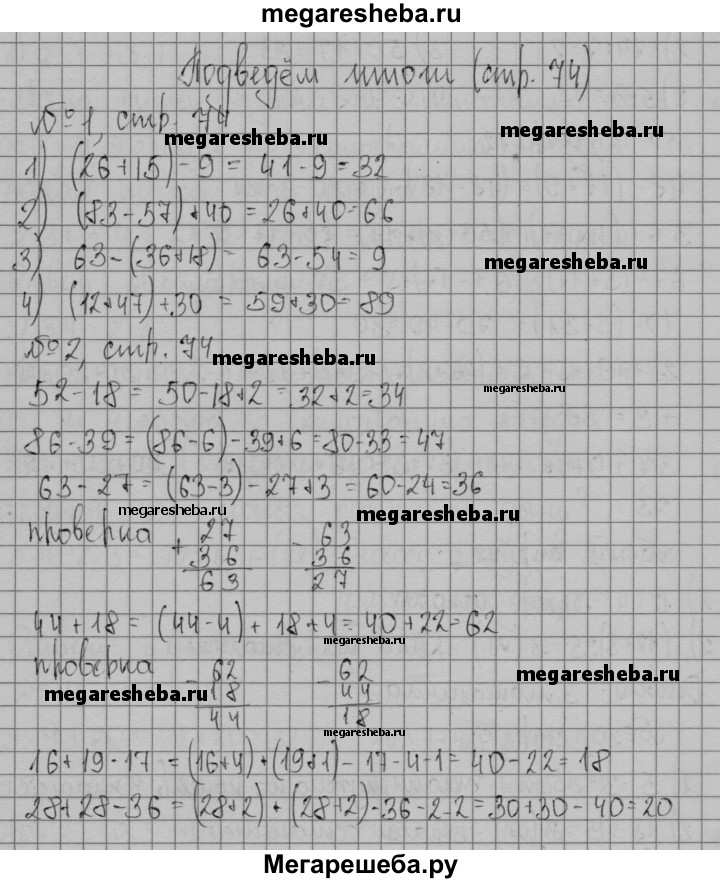 megaresheba.ru
Подведём итоги (стр. 74)
№ 1, стр. 74
megaresheba.ru
megaresheba.ru
1) (26+15) - 9 = 41 - 9 = 32
2) (83-57)+40 = 26+40=66
3) 63-(36+18)= 63-54= 9
megaresheba.ru
4) (12+47)+30 = 59+30=89
№ 2, стр. 74
megaresheba.ru
52-18= 50-18+2 = 32+2=34
megaresheba.ru
86-39=(86-6)-39+6=80-33=47
63-27=(63-3)-27+3=60-24=36
megaresheba.ru
megaresheba.ru
проверка + 27 - 63
36 36
63 27
44+18 = (44-4)+18+4=40+22=62
megaresheba.ru
проверка - 62 - 62
18 44
44 18
megaresheba.ru
megaresheba.ru
megaresheba.ru
16+19-17 =(16+4)+(19+1)-17-4-1=40-22=18
28+28-36 =(28+2)+(28+2)-36-2-2=30+30-40=20
Мегарешеба.ру